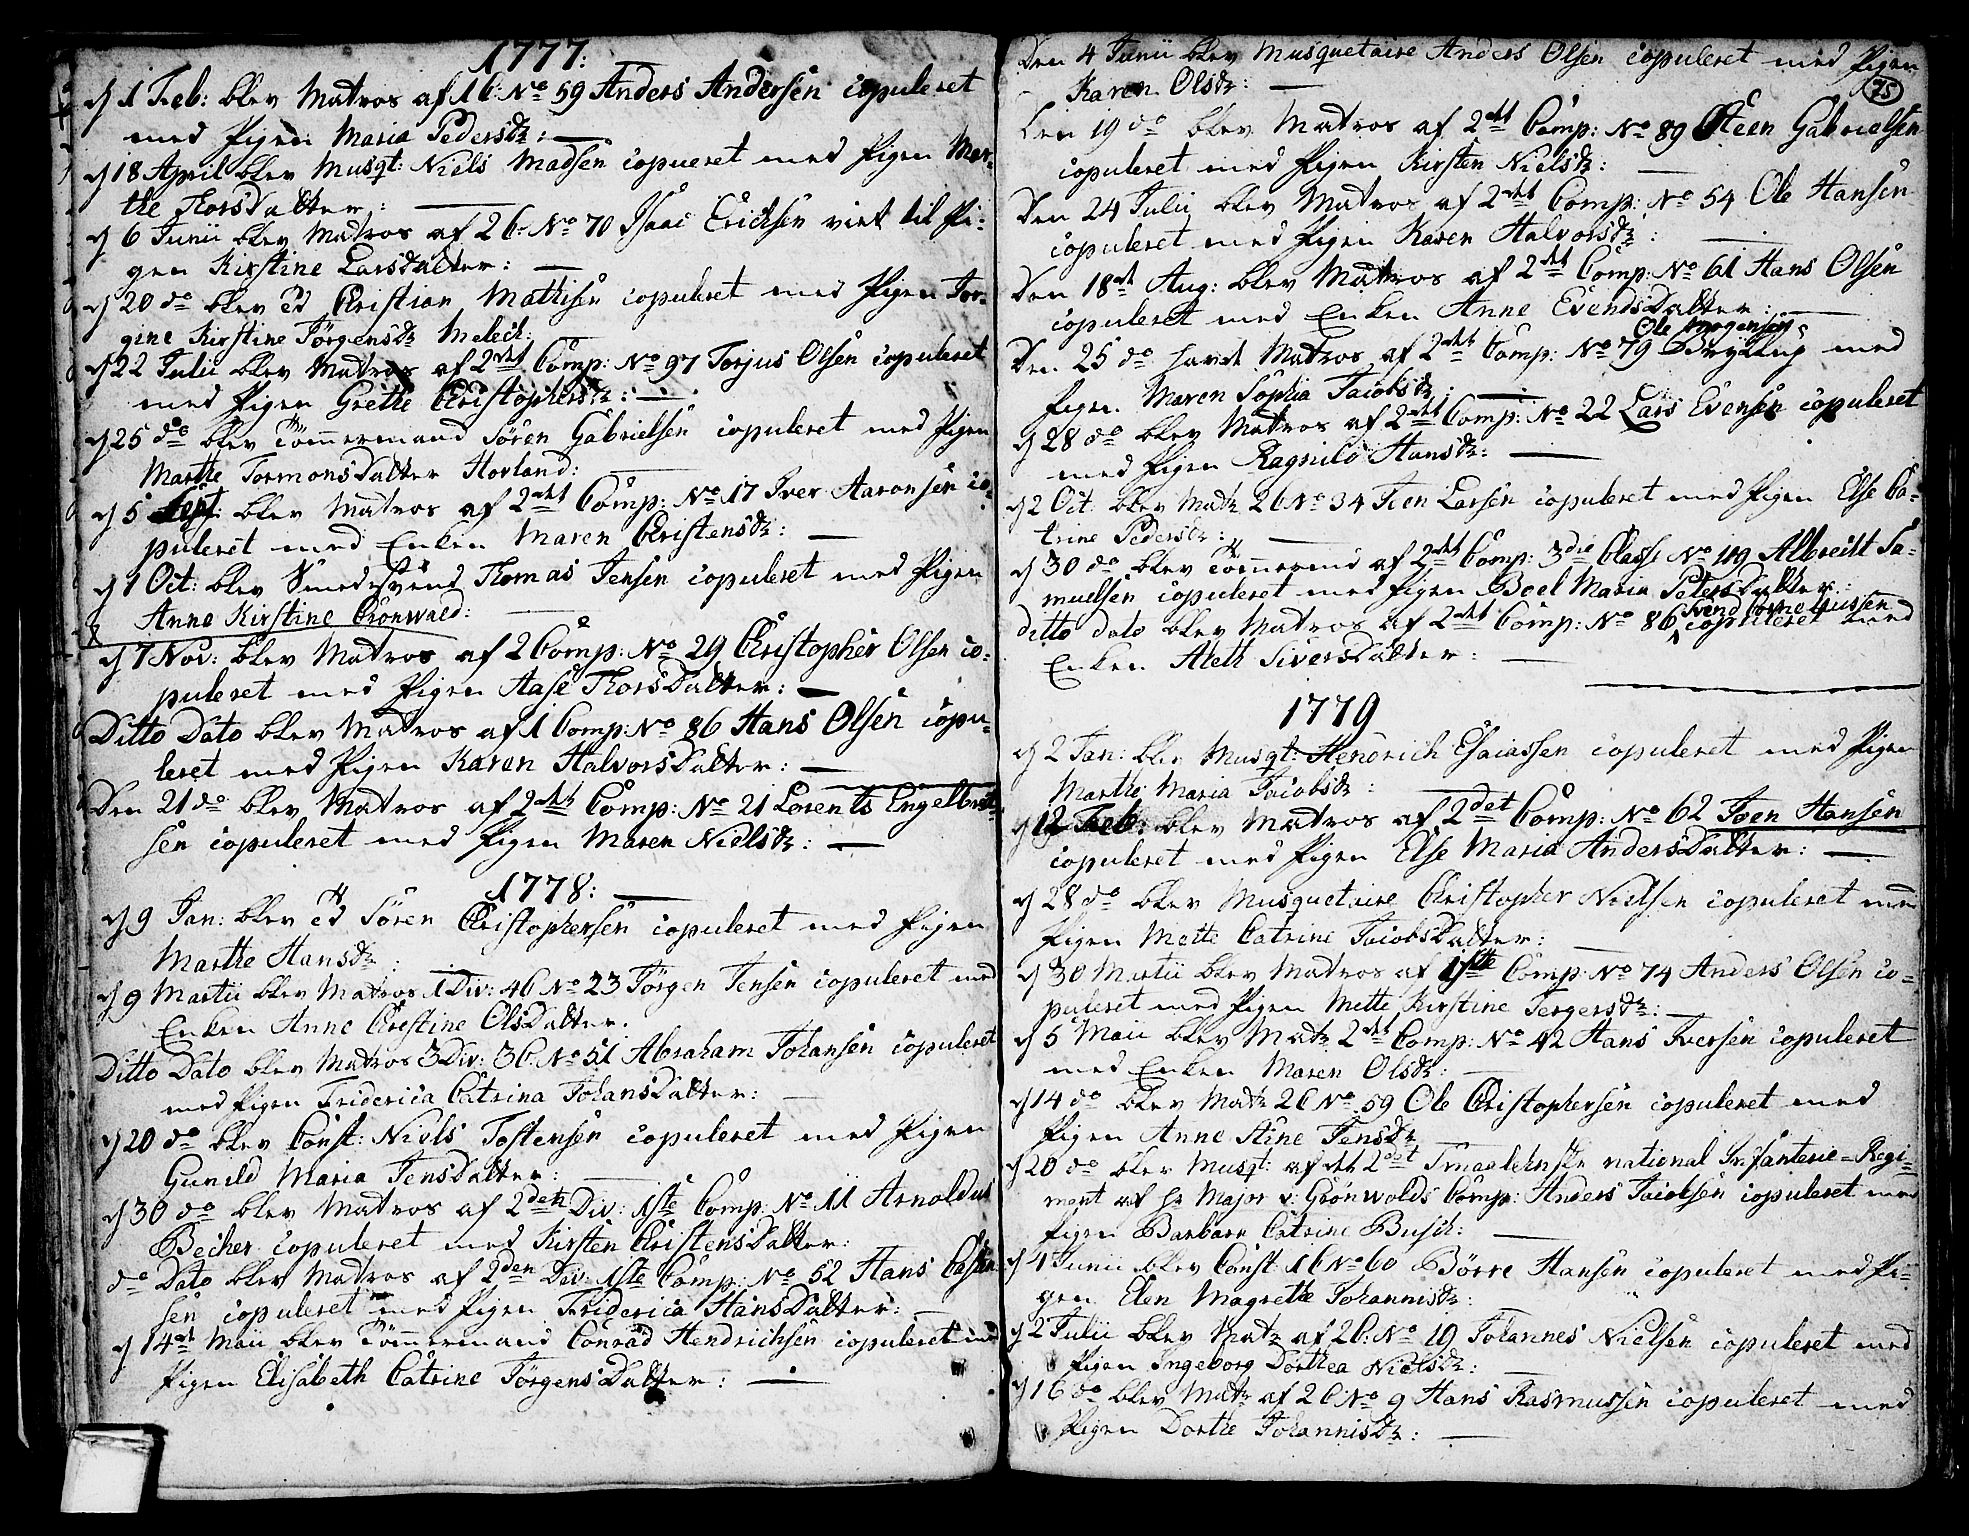 1777:
d 1 Feb: blev Matros af 1 C: No 59 Anders Andersen copuleret
med Pigen Maria Pedersdr:
d 18 April blev Musqt: Niels Madsen copueret med Pigen Mar-
the Thorsdatter:
d 6 Junii blev Matros af 2 C: No 70 Isaac Erichsen viet til Pi-
gen Kirstine Larsdatter:
d 20 do blev Christian Mathisen copuleret med Pigen Jor-
gine Kirstine Jörgensdr Melech:
d 22 Julii blev Matros af 2det Comp: No 97 Torjus Olsen copuleret
med Pigen Grethe Christophersdr:
d 25 do blev Tömmermand Sören Gabrielsen copuleret med Pigen
Marthe Tormonsdatter Hovland:
d 5 Sept: blev Matros af 2det Comp: No 17 Iver Aaronsen co-
puleret med Enken Maren Christensdr:
d 1 Oct: blev Smedesvend Thomas Jensen copuleret med Pigen
Anne Kirstine Grönwald:
d 7 Nov: blev Matros af 2 Comp: No 29 Christopher Olsen co-
puleret med Pigen Aase Thorsdatter:
Ditto Dato blev Matros af 1 Comp: No 86 Hans Olsen copu-
leret med Pigen Karen Halvorsdatter:
Den 21 do blev Matros af 2det Comp: No 21 Lorents Engelbret-
sen copuleret med Pigen Maren Nielsdr:
1778:
d 9 Jan: blev Sören Christophersen copuleret med Pigen
Marthe Hansdr:
d 9 Martii blev Matros 1 Div: 4 C No 23 Jörgen Jensen copuleret med
Enken Anne Chrestine Olsdatter.
Ditto Dato blev Matros 3 Div: 3 C: No 51 Abraham Johansen copuleret
med Pigen Friderica Catrina Johansdatter:
d 20 do blev Const: Niels Tostensen copuleret med Pigen
Gunild Maria Jensdatter:
d 30 do blev Matros af 2den Div: 1ste Comp: No 11 Arnoldus
Becher copuleret med Kirsten Christensdatter:
do Dato blev Matros af 2den Div: 1ste Comp: No 52 Hans
sen copuleret med Pigen Friderica Hansdatter:
d 14de Maii blev Tömmermand Conrad Hendrichsen copuleret med
Pigen Elisabeth Catrine Jörgensdatter:
75
Den 4 Junii blev Musquetaire Anders Olsen copuleret med Pigen
Karen Olsdr:
Den 19 do blev Matros af 2det Comp: No 89 Steen Gabrielsen
copuleret med Pigen Kirsten Nielsdr:
Den 24 Julii blev Matros af 2det Comp: No 54 Ole Hansen
copuleret med Pigen Karen Halvorsdr:
Den 18de Aug: blev Matros af 2det Comp: No 61 Hans Olsen
copuleret med Enken Anne Evensdatter:
Ole Mogensen
Den 25 do havde Matros af 2det Comp: No 79 Bryllup med
Pigen Maren Sophia Jacobsdr:
d 28 do blev Matros af 2det Comp: No 22 Lars Evensen copuleret
med Pigen Ragnild Hansdr:
d 2 Oct: blev Matr 2 C No 34 Joen Larsen copuleret med Pigen Else Ca-
trine Pedersdr:
d 30 do blev Tömermd af 2det Comp: 3die Classe No 119 Albrecht Sa-
muelsen copuleret med Pigen Boel Maria Petersdatter:
Svend Corneliussen
ditto dato blev Matros af 2det Comp: No 86 copuleret med
Enken Aleth Siversdatter:
1779
d 2 Jan: blev Musqt: Hendrich Esaiassen copuleret med Pigen
Marthe Maria Jacobsdr:
d 12 Feb: blev Matros af 2det Comp: No 62 Joen Hansen
copuleret med Pigen Else Maria Andersdatter:
d 28 do blev Musquetaire Christopher Nielsen copuleret med
Pigen Mette Catrine Jacobsdatter:
d 30 Martii blev Matros af 1ste Comp: No 74 Anders Olsen co-
puleret med Pigen Mette Kirstine Jergersdr:
d 5 Maii blev Matr 2det Comp: No 42 Hans Iversen copuleret
med Enken Maren Olsdr:
d 14 do blev Matr 2 C No 59 Ole Christophersen copuleret med
Pigen Anne Stine Jensdr
d 20 do blev Musqt: af det 2det Smaalehnske national Infanterie-Regi-
ment af Hr Major v: Grönwolds Comp: Anders Jacobsen copuleret med
Pigen Barbara Catrine Busch:
d 4 Junii blev Const 1 C No 60 Börre Hansen copuleret med Pi-
gen Elen Magrethe Johannisdr:
d 2 Julii blev Matr af 2 C: No 19 Johannes Nielsen copuleret med
Pigen Ingeborg Dorthea Nielsdr:
d 16 do blev Matr af 2 C No 9 Hans Rasmussen copuleret med
Pigen Dorthe Johannisdr: